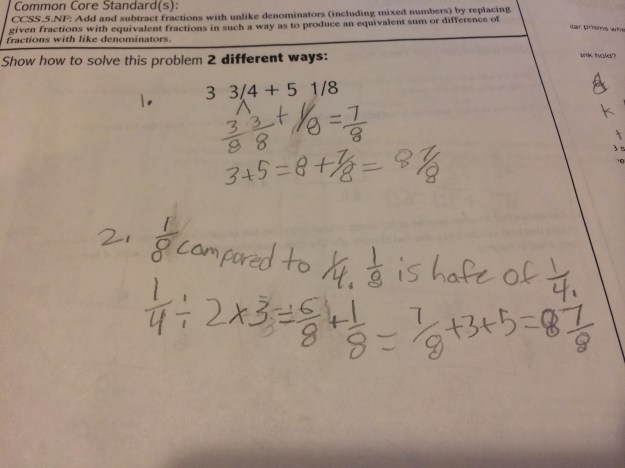 Common Core Standard(s):
CCSS.5.NF: Add and subtract fractions with unlike denominators (including mixed numbers) by replacing
given fractions with equivalent fractions in such a way as to produce an equivalent sum or difference of
fractions with like denominators.
Show how to solve this problem 2 different ways:
1. 3 3/4 + 5 1/8
3/8 3/8 + 1/8 = 7/8
3+5=8+7/8= 8 7/8
2. 1/8 compared to 1/4. 1/8 is hafe of 1/4.
1/4 ÷ 2×3=6/8+1/8=7/8+3+5=8 7/8
ink hold?
k